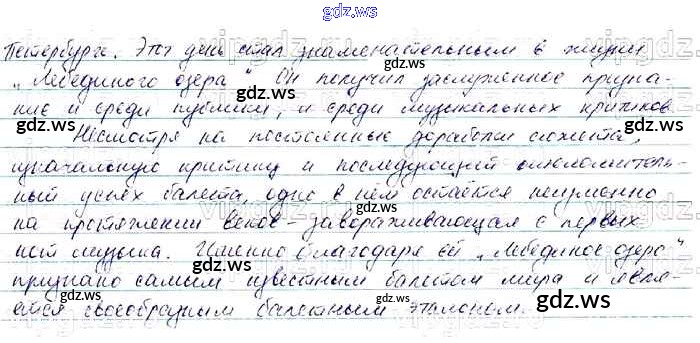 gdz.ws
Петербурге. Этот день стал знаменательным в жизни
"Лебединого озера" Он получил заслуженное призна-
ние и среди публики, и среди музыкальных критиков
Несмотря на постоянные доработки сюжета,
изначальную критику и последующий ошеломитель-
ный успех балета, одно в нём остаётся неизменно
на протяжении веков - завораживающая с первых
нот музыка. Именно благодаря ей "Лебединое озеро"
признано самым известным балетом мира и явля-
ется своеобразным балетным эталоном.